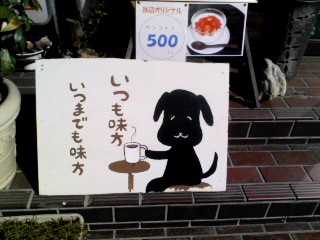 当店オリジナル
ワンコイン
500
いつも味方
いつまでも味方